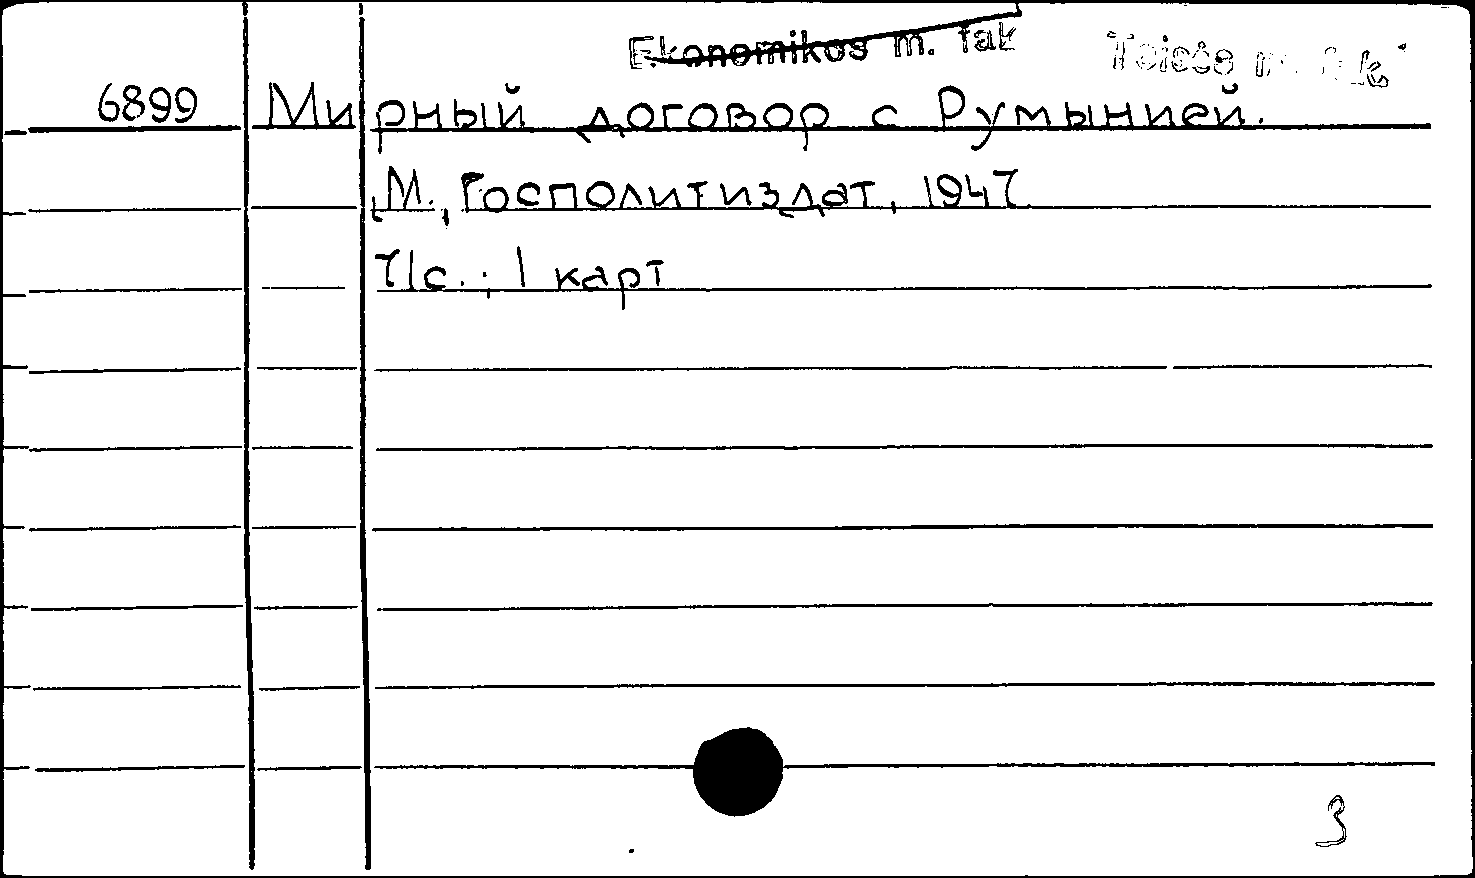 Ekonomikos m. fak
Teisės m. fak.
6899 Мирный договор с Румынией.
М., Госполитиздат, 1947
71с.; 1 карт
3